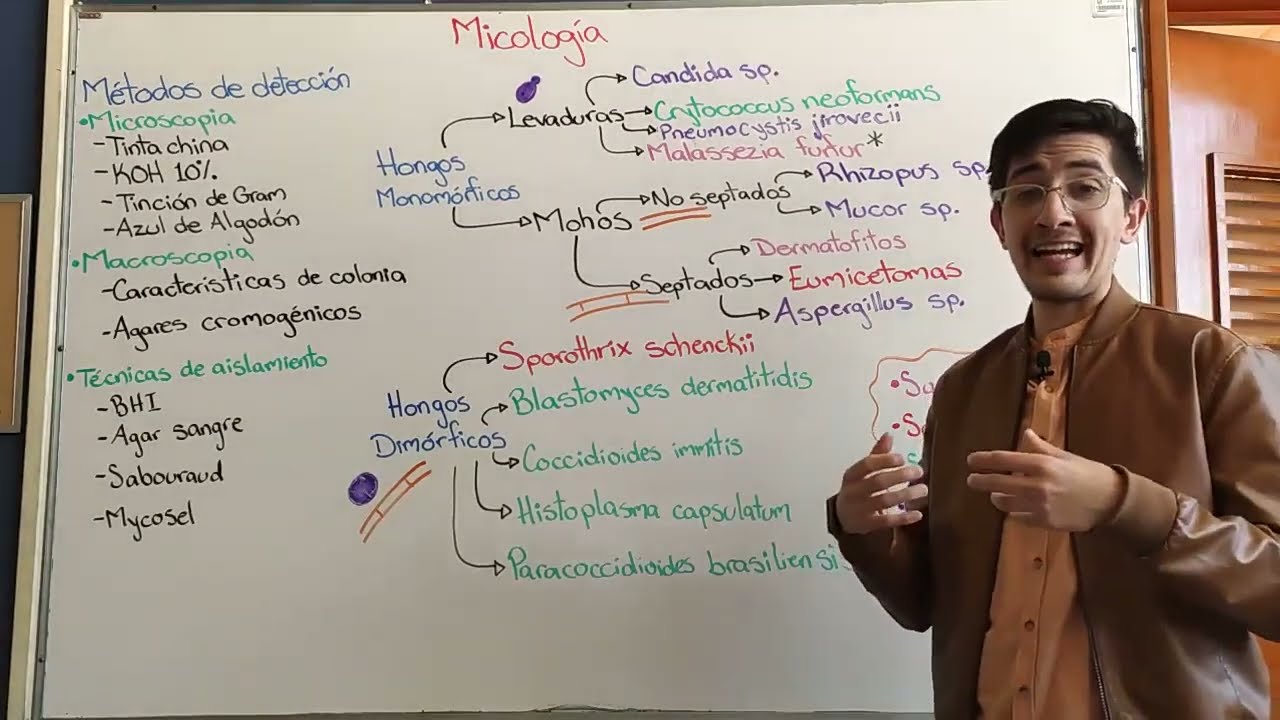 Micología
Métodos de detección
•Microscopia
-Tinta china
-KOH 10%
-Tinción de Gram
-Azul de Algodón
•Macroscopia
-Características de colonia
-Agares cromogénicos
•Técnicas de aislamiento
-BHI
-Agar sangre
-Sabouraud
-Mycosel
Hongos
Monomórficos
Levaduras
Candida sp.
Crytococcus neoformans
Pneumocystis jirovecii
Malassezia furfur*
Mohos
No septados
Rhizopus sp
Mucor sp.
Septados
Dermatofitos
Eumicetomas
Aspergillus sp.
Hongos
Dimórficos
Sporothrix schenckii
Blastomyces dermatitidis
Coccidioides immitis
Histoplasma capsulatum
Paracoccidioides brasiliensi